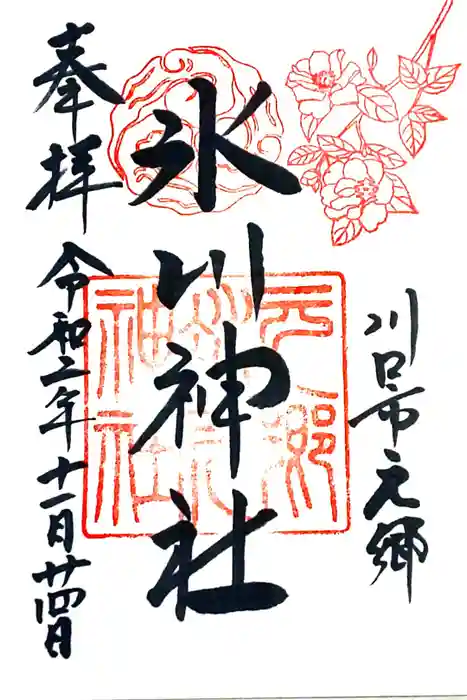 川口市元郷
氷川神社
奉拝
令和二年十一月廿四日
元郷
氷川
神社